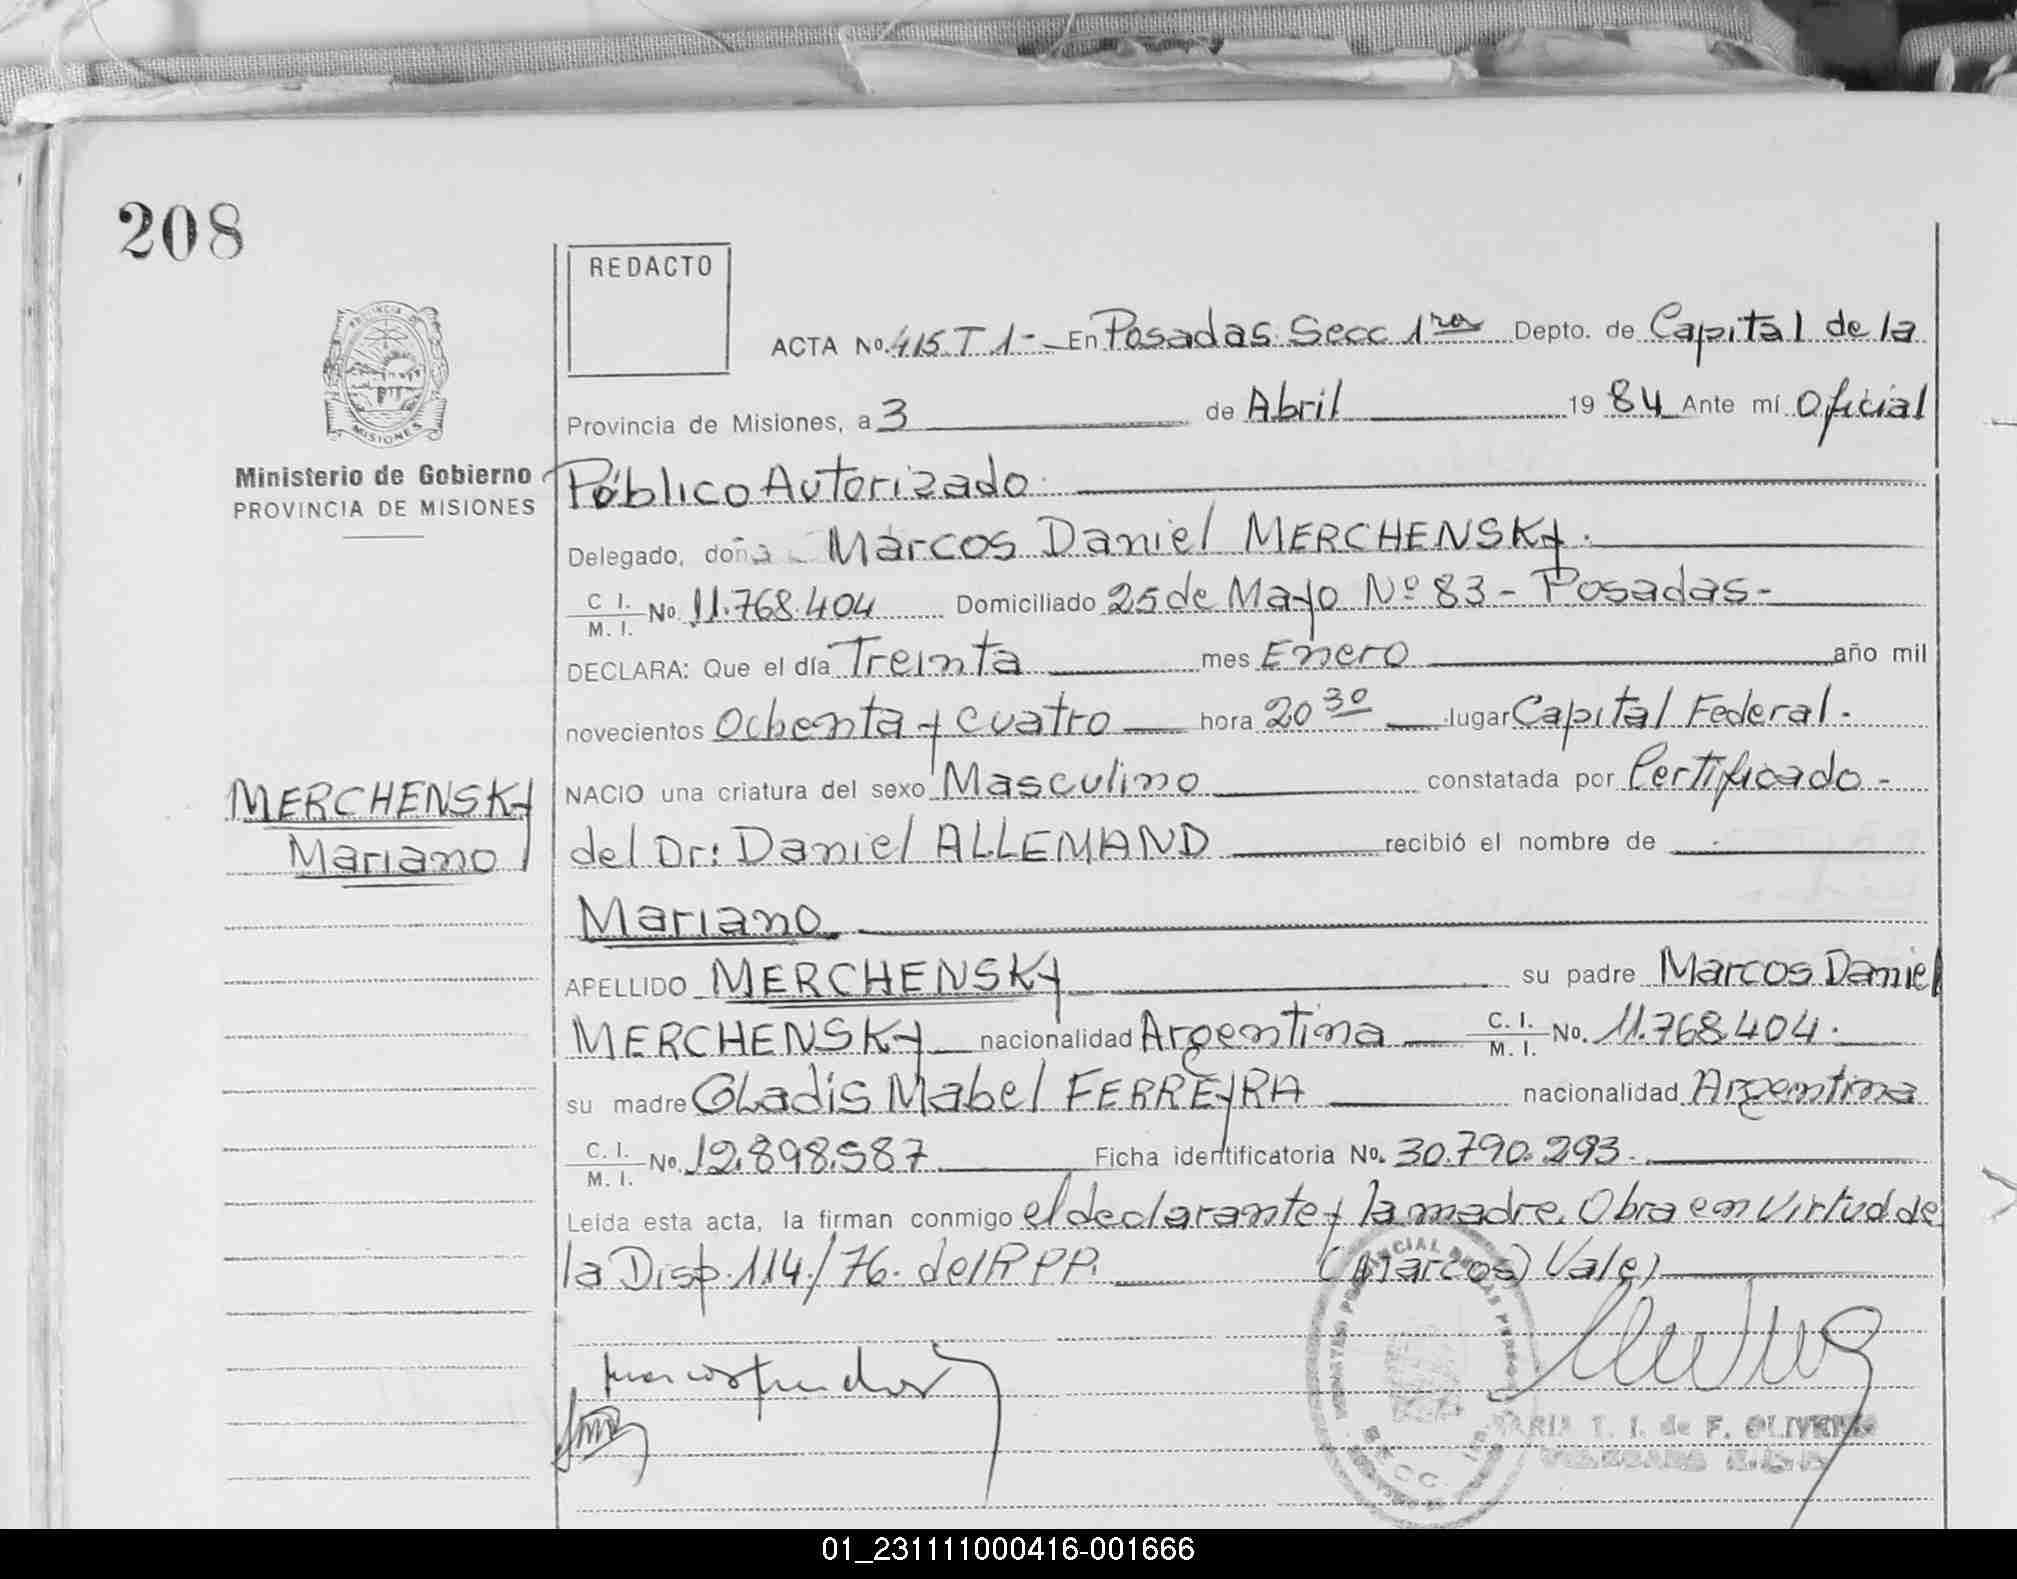 208
REDACTO
ACTA No. 415 T 1- En Posadas Secc 1ra Depto. de Capital de la
Provincia de Misiones, a 3 de Abril 1984 Ante mí Oficial
Ministerio de Gobierno
PROVINCIA DE MISIONES
Público Autorizado
Delegado, doña Marcos Daniel MERCHENSKY.
C I. M. I. No. 11.768.404 Domiciliado 25 de Mayo Nº 83 - Posadas-
DECLARA: Que el día Treinta mes Enero año mil
novecientos Ochenta y cuatro hora 20 30 lugar Capital Federal.
NACIO una criatura del sexo Masculino constatada por Certificado-
MERCHENSKY
Mariano
del Dr: Daniel ALLEMAND recibió el nombre de
Mariano
APELLIDO MERCHENSKY su padre Marcos Daniel
MERCHENSKY nacionalidad Argentina C. I. M. I. No. 11.768.404.
su madre GLadis Mabel FERREYRA nacionalidad Argentina
C. I. M. I. No. 12.898.587 Ficha identificatoria No. 30.790.293.
Leída esta acta, la firman conmigo el declarante y la madre. Obra en virtud de
la Disp. 114/76. del RPP. (Marcos) Vale)
MISIONES
SECC. 1ra
MARIA T. I. de F. OLIVEIRA
01_231111000416-001666